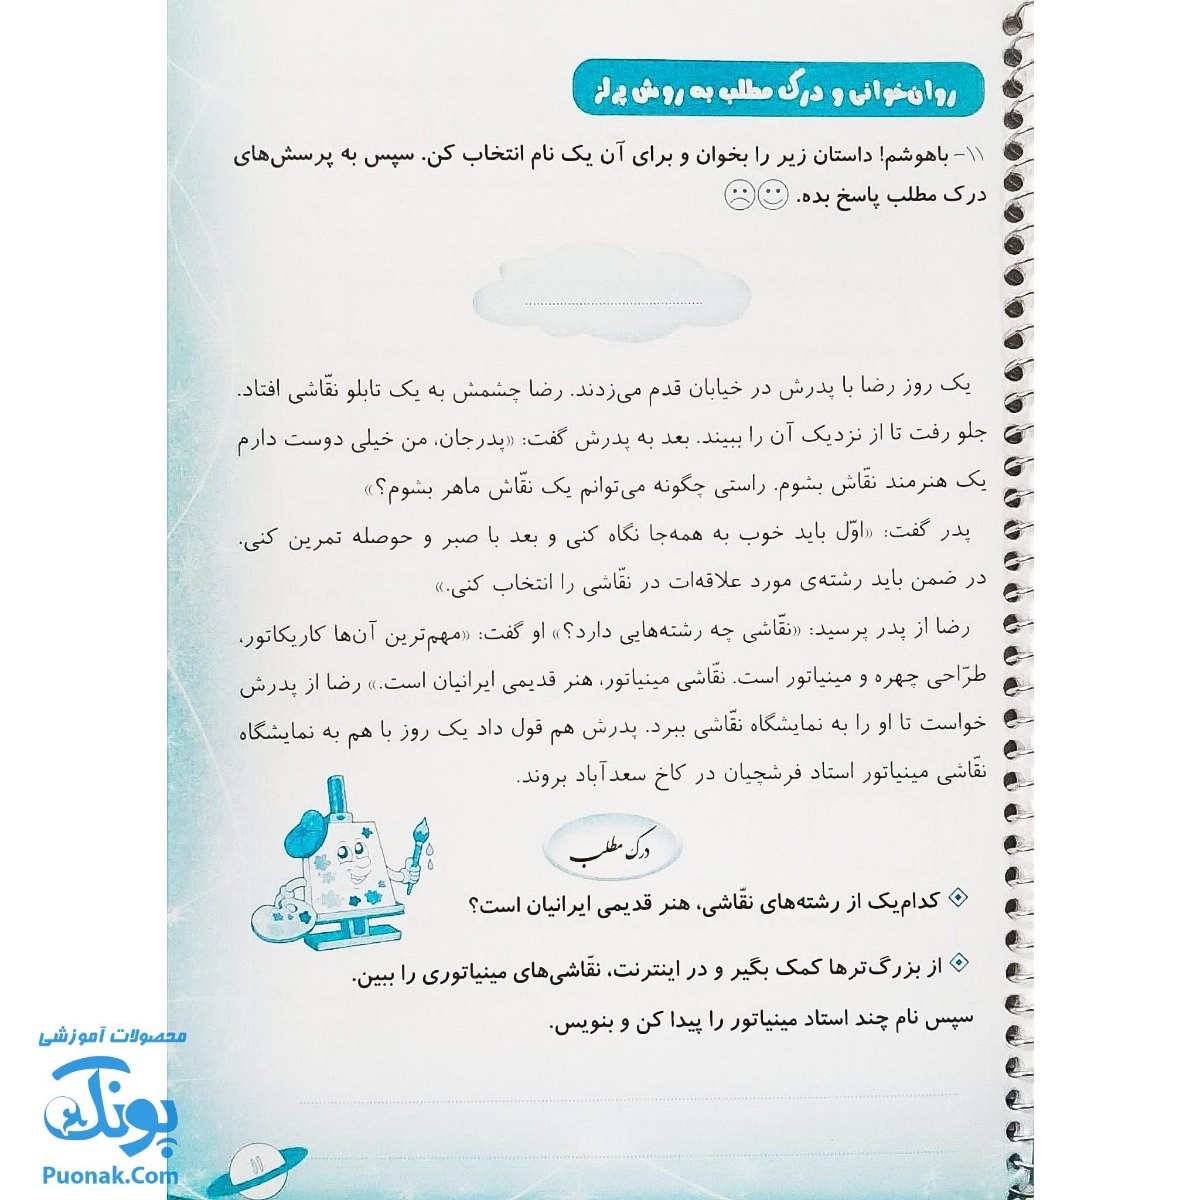 روان‌خوانی و درک مطلب به روش پرلز
۱۱- باهوشم! داستان زیر را بخوان و برای آن یک نام انتخاب کن. سپس به پرسش‌های
درک مطلب پاسخ بده.
یک روز رضا با پدرش در خیابان قدم می‌زدند. رضا چشمش به یک تابلو نقّاشی افتاد.
جلو رفت تا از نزدیک آن را ببیند. بعد به پدرش گفت: «پدرجان، من خیلی دوست دارم
یک هنرمند نقّاش بشوم. راستی چگونه می‌توانم یک نقّاش ماهر بشوم؟»
پدر گفت: «اوّل باید خوب به همه‌جا نگاه کنی و بعد با صبر و حوصله تمرین کنی.
در ضمن باید رشته‌ی مورد علاقه‌ات در نقّاشی را انتخاب کنی.»
رضا از پدر پرسید: «نقّاشی چه رشته‌هایی دارد؟» او گفت: «مهم‌ترین آن‌ها کاریکاتور،
طرّاحی چهره و مینیاتور است. نقّاشی مینیاتور، هنر قدیمی ایرانیان است.» رضا از پدرش
خواست تا او را به نمایشگاه نقّاشی ببرد. پدرش هم قول داد یک روز با هم به نمایشگاه
نقّاشی مینیاتور استاد فرشچیان در کاخ سعدآباد بروند.
درک مطلب
کدام‌یک از رشته‌های نقّاشی، هنر قدیمی ایرانیان است؟
از بزرگ‌ترها کمک بگیر و در اینترنت، نقّاشی‌های مینیاتوری را ببین.
سپس نام چند استاد مینیاتور را پیدا کن و بنویس.
محصولات آموزشی
پونک
Puonak.Com
۱۱